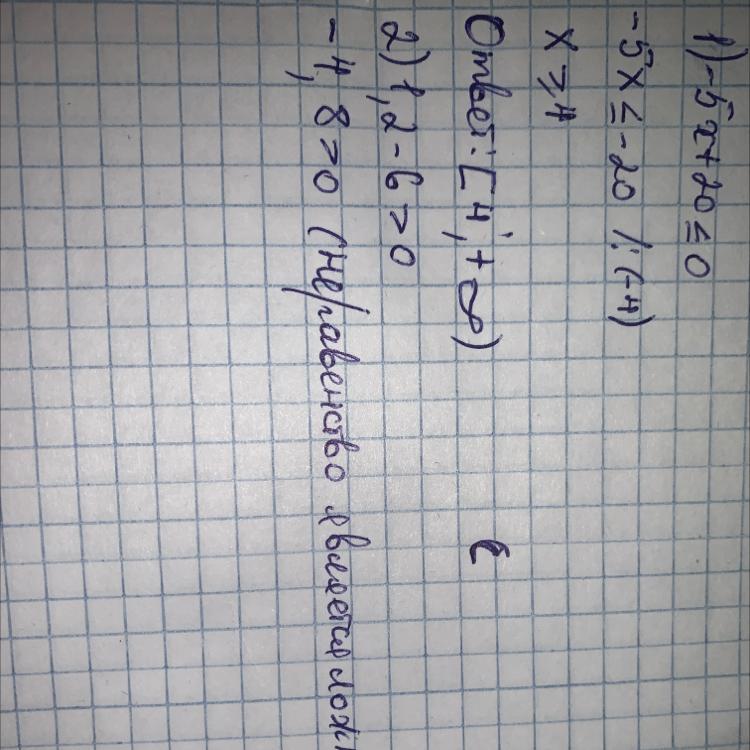 1) -5x+20≤0
-5x≤-20 /:(-4)
x≥4
Ответ: [4;+∞)
2) 1,2-6>0
-4,8>0 (неравенство является ложн